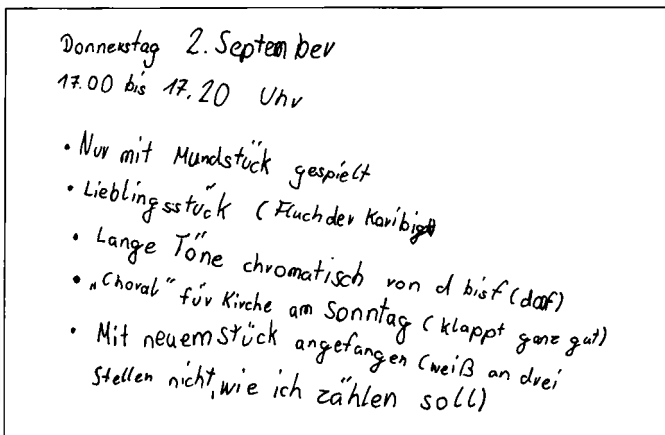 Donnerstag 2. September
17.00 bis 17.20 Uhr
• Nur mit Mundstück gespielt
• Lieblingsstück (Fluch der Karibig
• Lange Töne chromatisch von d bis f (doof)
• „Choral" für Kirche am Sonntag (klappt ganz gut)
• Mit neuem Stück angefangen (weiß an drei
Stellen nicht, wie ich zählen soll)